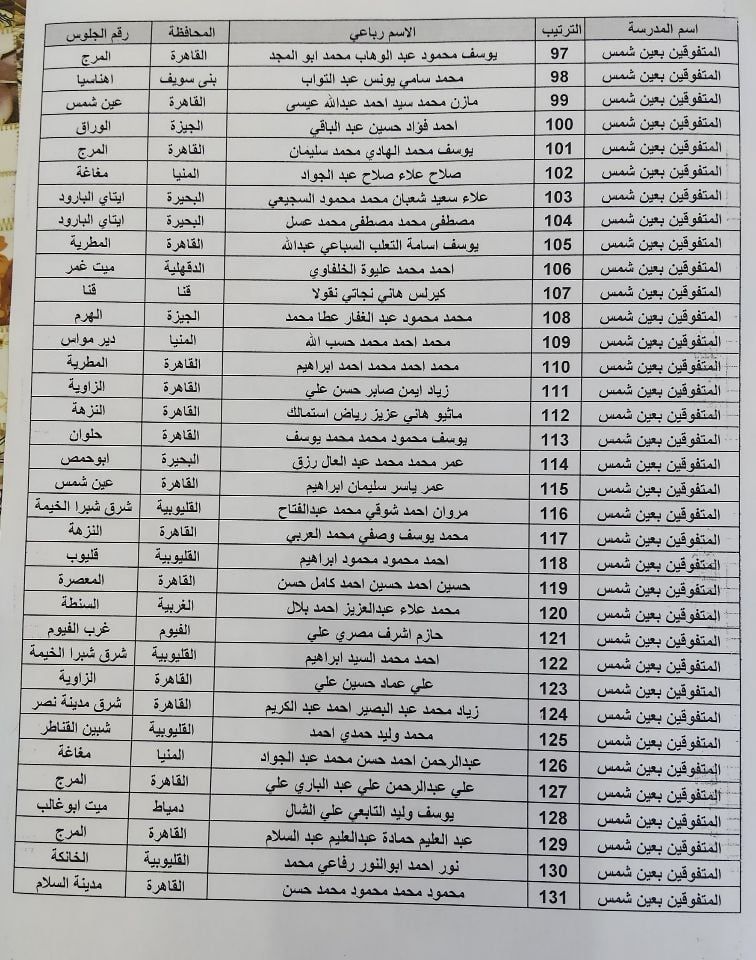 اسم المدرسة الترتيب الاسم رباعي المحافظة رقم الجلوس
المتفوقين بعين شمس 97 يوسف محمود عبد الوهاب محمد ابو المجد القاهرة المرج
المتفوقين بعين شمس 98 محمد سامي يونس عبد التواب بنى سويف اهناسيا
المتفوقين بعين شمس 99 مازن محمد سيد احمد عبدالله عيسى القاهرة عين شمس
المتفوقين بعين شمس 100 احمد فؤاد حسين عبد الباقي الجيزة الوراق
المتفوقين بعين شمس 101 يوسف محمد الهادي محمد سليمان القاهرة المرج
المتفوقين بعين شمس 102 صلاح علاء صلاح عبد الجواد المنيا مغاغة
المتفوقين بعين شمس 103 علاء سعيد شعبان محمد محمود السجيعي البحيرة ايتاي البارود
المتفوقين بعين شمس 104 مصطفى محمد مصطفى محمد عسل البحيرة ايتاي البارود
المتفوقين بعين شمس 105 يوسف اسامة التعلب السباعي عبدالله القاهرة المطرية
المتفوقين بعين شمس 106 احمد محمد عليوة الخلفاوي الدقهلية ميت غمر
المتفوقين بعين شمس 107 كيرلس هاني نجاتي نقولا قنا قنا
المتفوقين بعين شمس 108 محمد محمود عبد الغفار عطا محمد الجيزة الهرم
المتفوقين بعين شمس 109 محمد احمد محمد حسب الله المنيا دير مواس
المتفوقين بعين شمس 110 محمد احمد محمد احمد ابراهيم القاهرة المطرية
المتفوقين بعين شمس 111 زياد ايمن صابر حسن علي القاهرة الزاوية
المتفوقين بعين شمس 112 ماثيو هاني عزيز رياض استمالك القاهرة النزهة
المتفوقين بعين شمس 113 يوسف محمود محمد محمد يوسف القاهرة حلوان
المتفوقين بعين شمس 114 عمر محمد محمد عبد العال رزق البحيرة ابوحمص
المتفوقين بعين شمس 115 عمر ياسر سليمان ابراهيم القاهرة عين شمس
المتفوقين بعين شمس 116 مروان احمد شوقي محمد عبدالفتاح القليوبية شرق شبرا الخيمة
المتفوقين بعين شمس 117 محمد يوسف وصفي محمد العربي القاهرة النزهة
المتفوقين بعين شمس 118 احمد محمود محمود ابراهيم القليوبية قليوب
المتفوقين بعين شمس 119 حسين احمد حسين احمد كامل حسن القاهرة المعصرة
المتفوقين بعين شمس 120 محمد علاء عبدالعزيز احمد بلال الغربية السنطة
المتفوقين بعين شمس 121 حازم اشرف مصري علي الفيوم غرب الفيوم
المتفوقين بعين شمس 122 احمد محمد السيد ابراهيم القليوبية شرق شبرا الخيمة
المتفوقين بعين شمس 123 علي عماد حسين علي القاهرة الزاوية
المتفوقين بعين شمس 124 زياد محمد عبد البصير احمد عبد الكريم القاهرة شرق مدينة نصر
المتفوقين بعين شمس 125 محمد وليد حمدي احمد القليوبية شبين القناطر
المتفوقين بعين شمس 126 عبدالرحمن احمد حسن محمد عبد الجواد المنيا مغاغة
المتفوقين بعين شمس 127 علي عبدالرحمن علي عبد الباري علي القاهرة المرج
المتفوقين بعين شمس 128 يوسف وليد التابعي علي الشال دمياط ميت ابوغالب
المتفوقين بعين شمس 129 عبد العليم حمادة عبدالعليم عبد السلام القاهرة المرج
المتفوقين بعين شمس 130 نور احمد ابوالنور رفاعي محمد القليوبية الخانكة
المتفوقين بعين شمس 131 محمود محمد محمود محمد حسن القاهرة مدينة السلام